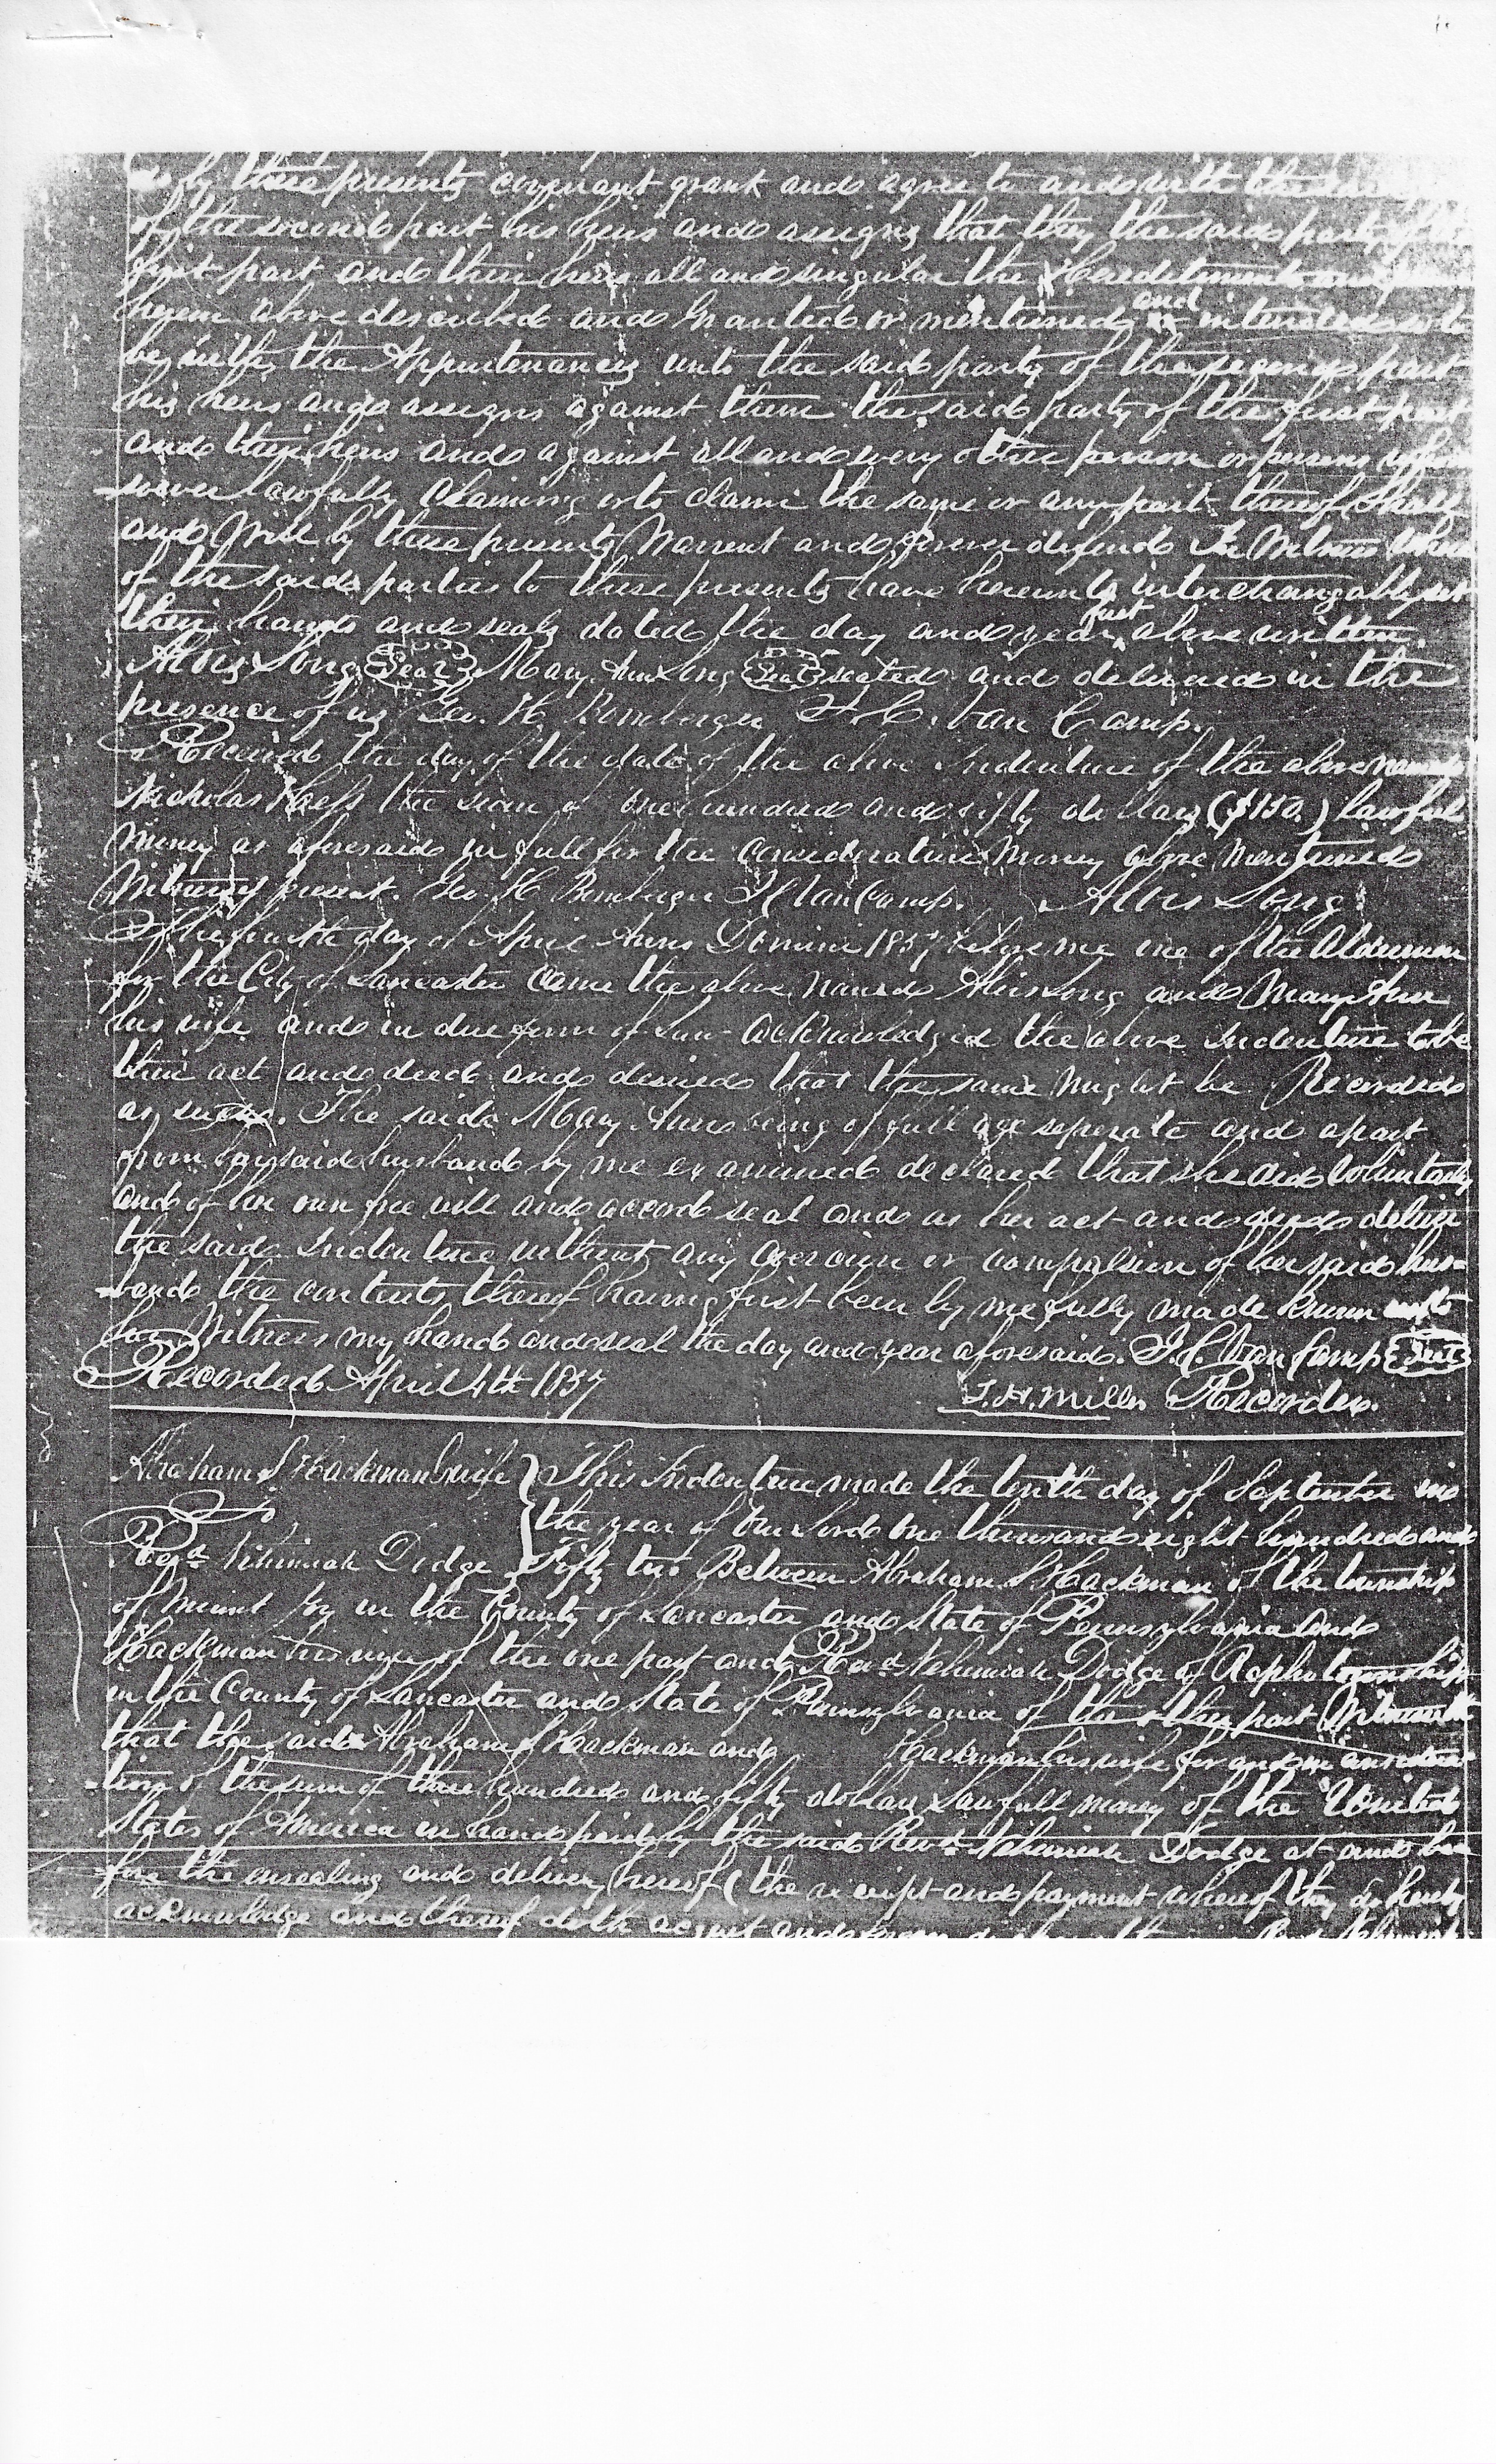 do by these presents covenant grant and agree to and with the said
of the second part his heirs and assigns that they the said party of the
first part and their heirs all and singular the Hereditaments and
herein above described and Granted or mentioned and intended so to
be with the Appurtenances unto the said party of the second part
his heirs and assigns against them the said party of the first part
and their heirs and against all and every other person or persons whom
=soever lawfully Claiming or to claim the same or any part thereof Shall
and Will by these presents Warrent and forever defend In Witness where
of the said parties to these presents have hereunto interchangably set
their hands and seals dated the day and year first above written.
Alois Long Seal Mary Ann Long Seal sealed and delivered in the
presence of us Geo. H Bomberger J. C. Van Camp.
Received the day of the date of the above Indenture of the above named
Nicholas the sum of one hundred and fifty dollars ($150.) lawful
money as aforesaid in full for the Consideration Money above mentioned
Witnesses present. Geo. H Bomberger J C Van Camp. Alois Long
The fourth day of April Anno Domini 1857 before me one of the Aldermen
for the City of Lancaster came the above named Alois Long and Mary Ann
his wife and in due form of Law acknowledged the above Indenture to be
their act and deed and desired that the same might be Recorded
as such. The said Mary Ann being of full age seperate and apart
from her said husband by me examined declared that she did voluntarily
and of her own free will and accord seal and as her act and deed deliver
the said Indenture without any coercion or compulsion of her said hus=
=band the contents thereof having first been by me fully made known unto
her Witness my hand and seal the day and year aforesaid. J. C. Van Camp Seal
Recorded April 4th 1857 T. H. Miller Recorder.
Abraham S Hackman & wife This Indenture made the tenth day of September in
To the year of Our Lord one thousand eight hundred and
Revd Nehimiah Dodge Fifty two Between Abraham S Hackman of the township
of Mount Joy in the County of Lancaster and State of Pennsylvania and
Hackman his wife of the one part and Revd Nehemiah Dodge of Rapho township
in the County of Lancaster and State of Pennsylvania of the other part Witnesseth
that the said Abraham S Hackman and Hackman his wife for and in considera
=tion of the sum of three hundred and fifty dollars Lawfull money of the United
States of America in hand paid by the said Revd Nehemiah Dodge at and be
=fore the ensealing and delivery hereof (the receipt and payment whereof they do hereby
acknowledge and thereof doth acquit and